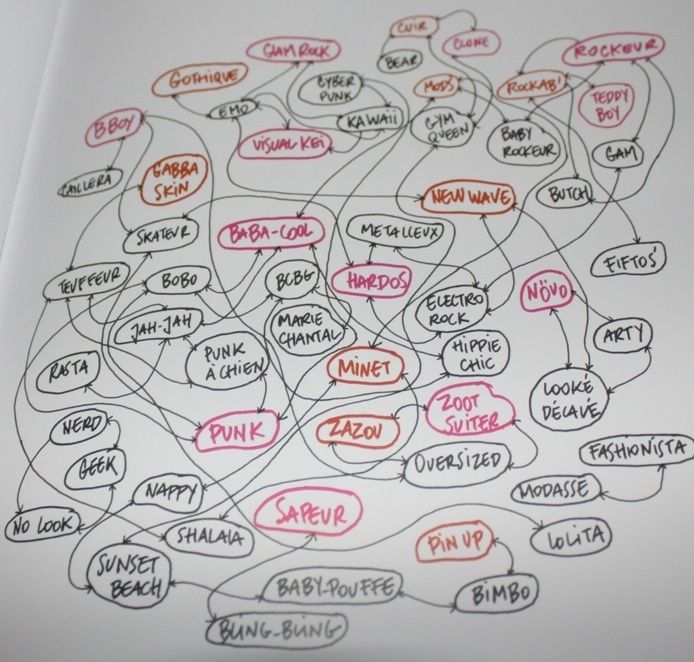 CUIR
CLONE
BEAR
GLAM ROCK
ROCKEUR
GOTHIQUE
CYBER
PUNK
MODS
ROCKAB'
TEDDY
BOY
EMO
KAWAII
GYM
QUEEN
BABY
ROCKEUR
B BOY
VISUAL KEI
GAM
CAILLERA
GABBA
SKIN
NEW WAVE
BUTCH
SKATEUR
BABA-COOL
METALLEUX
FIFTOS'
TEUFFEUR
BOBO
BCBG
HARDOS
ELECTRO
ROCK
NÖVO
JAH-JAH
MARIE
CHANTAL
ARTY
RASTA
PUNK
À CHIEN
MINET
HIPPIE
CHIC
LOOKÉ
DÉCAVÉ
NERD
PUNK
ZAZOU
ZOOT
SUITER
FASHIONISTA
GEEK
OVERSIZED
NAPPY
MODASSE
NO LOOK
SHALALA
SAPEUR
PIN UP
LOLITA
SUNSET
BEACH
BABY-POUFFE
BIMBO
BLING-BLING